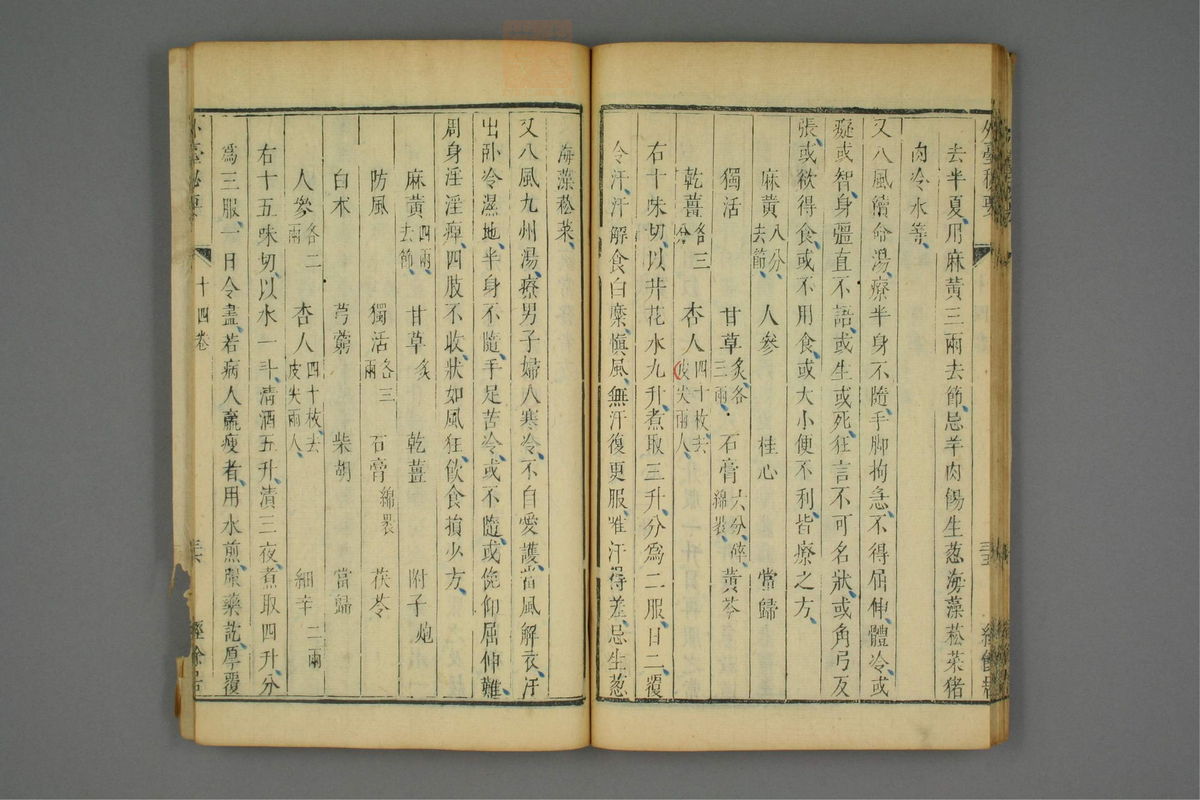 外臺秘要
去半夏用麻黃三兩去節忌羊肉餳生葱海藻菘菜猪
肉冷水等
又八風續命湯療半身不隨手脚拘急不得屈伸體冷或
癡或智身彊直不語或生或死狂言不可名狀或角弓反
張或欲得食或不用食或大小便不利皆療之方
麻黃八分去節 人參 桂心 當歸
獨活 甘草炙各三兩 石膏六分碎綿裹 黃芩
乾薑各三分 杏人四十枚去皮尖兩人
右十味切以井花水九升煮取三升分爲二服日二覆
令汗汗解食白糜慎風無汗復更服惟汗得差忌生葱
海藻菘菜
又八風九州湯療男子婦人寒冷不自愛護當風解衣汗
出卧冷濕地半身不隨手足苦冷或不隨或俛仰屈伸難
周身淫淫痺四肢不收狀如風狂飲食損少方
麻黃四兩去節 甘草炙 乾薑 附子炮
防風 獨活各三兩 石膏綿裹 茯苓
白朮 芎藭 柴胡 當歸
人參各二兩 杏人四十枚去皮尖兩人 細辛二兩
右十五味切以水一斗清酒五升漬三夜煮取四升分
爲三服一日令盡若病人羸瘦者用水煎服藥訖厚覆
十四卷